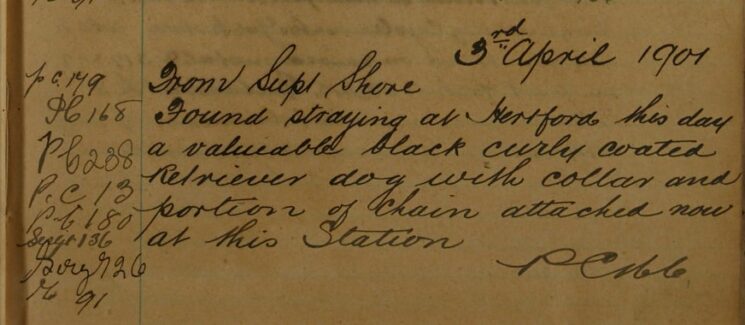 3rd April 1901
p c. 179
From Supt Shore
PC 168
Found straying at Hertford this day
PC 238
a valueable black curly coated
P.C 13
Retriever dog with collar and
P.C 180
portion of chain attached now
Sergt 136
at this Station
Sergt 26
91